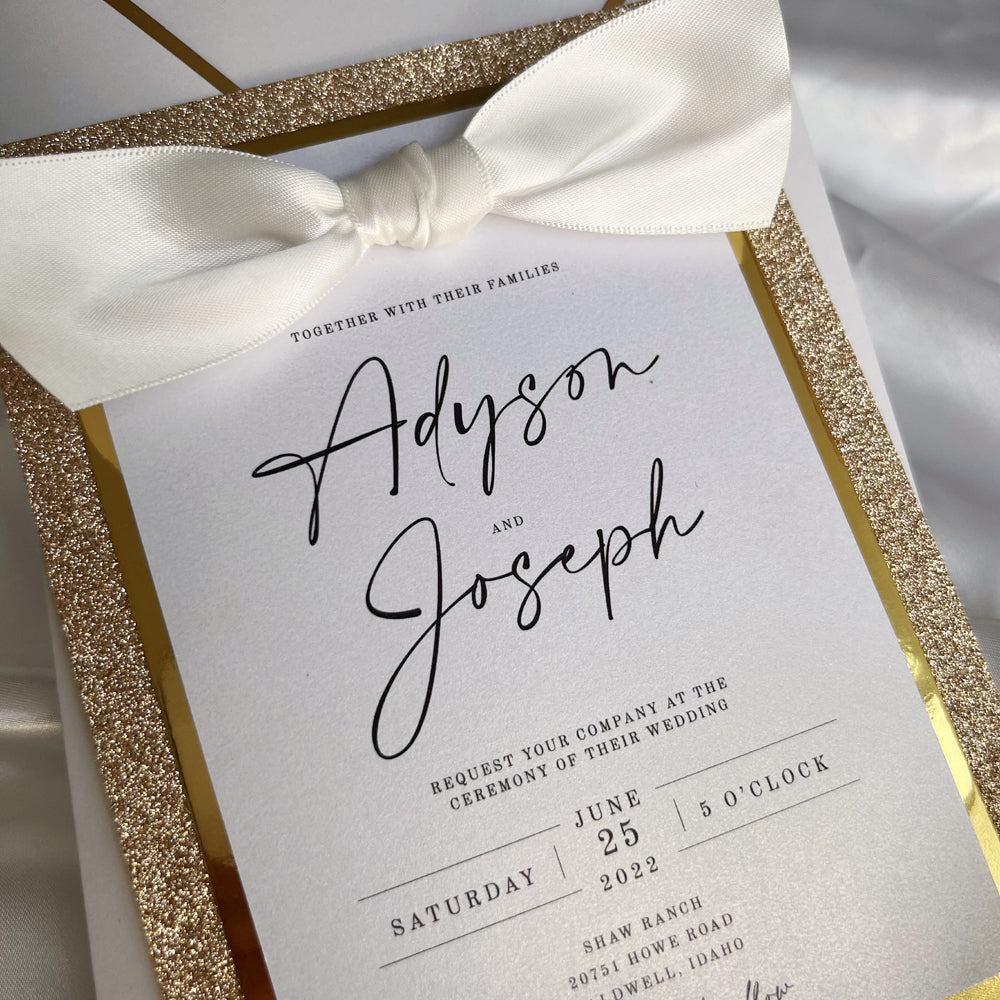 TOGETHER WITH THEIR FAMILIES
Adyson
AND
Joseph
REQUEST YOUR COMPANY AT THE
CEREMONY OF THEIR WEDDING
SATURDAY
JUNE
25
2022
5 O'CLOCK
SHAW RANCH
20751 HOWE ROAD
IDAHO